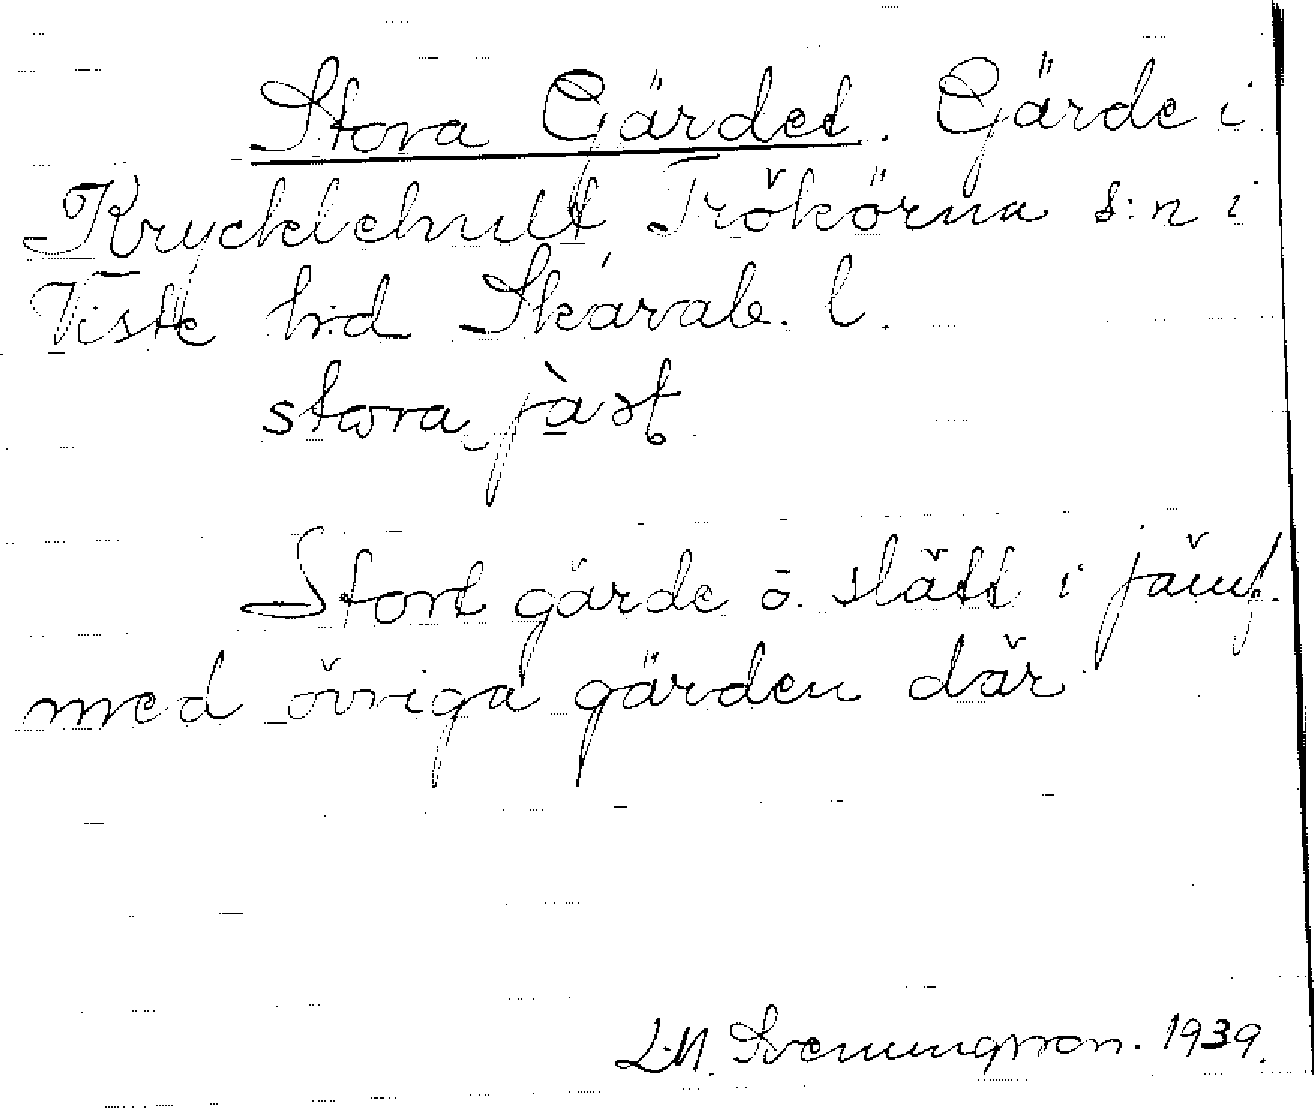 Stora Gärdet. Gärde i
Krycklehult Trökörna s:n i
Viste hd Skarab. l.
stora jàst
Stort gärde o. slätt i jämf.
med övriga gärden där
L.N. Svenungsson. 1939.